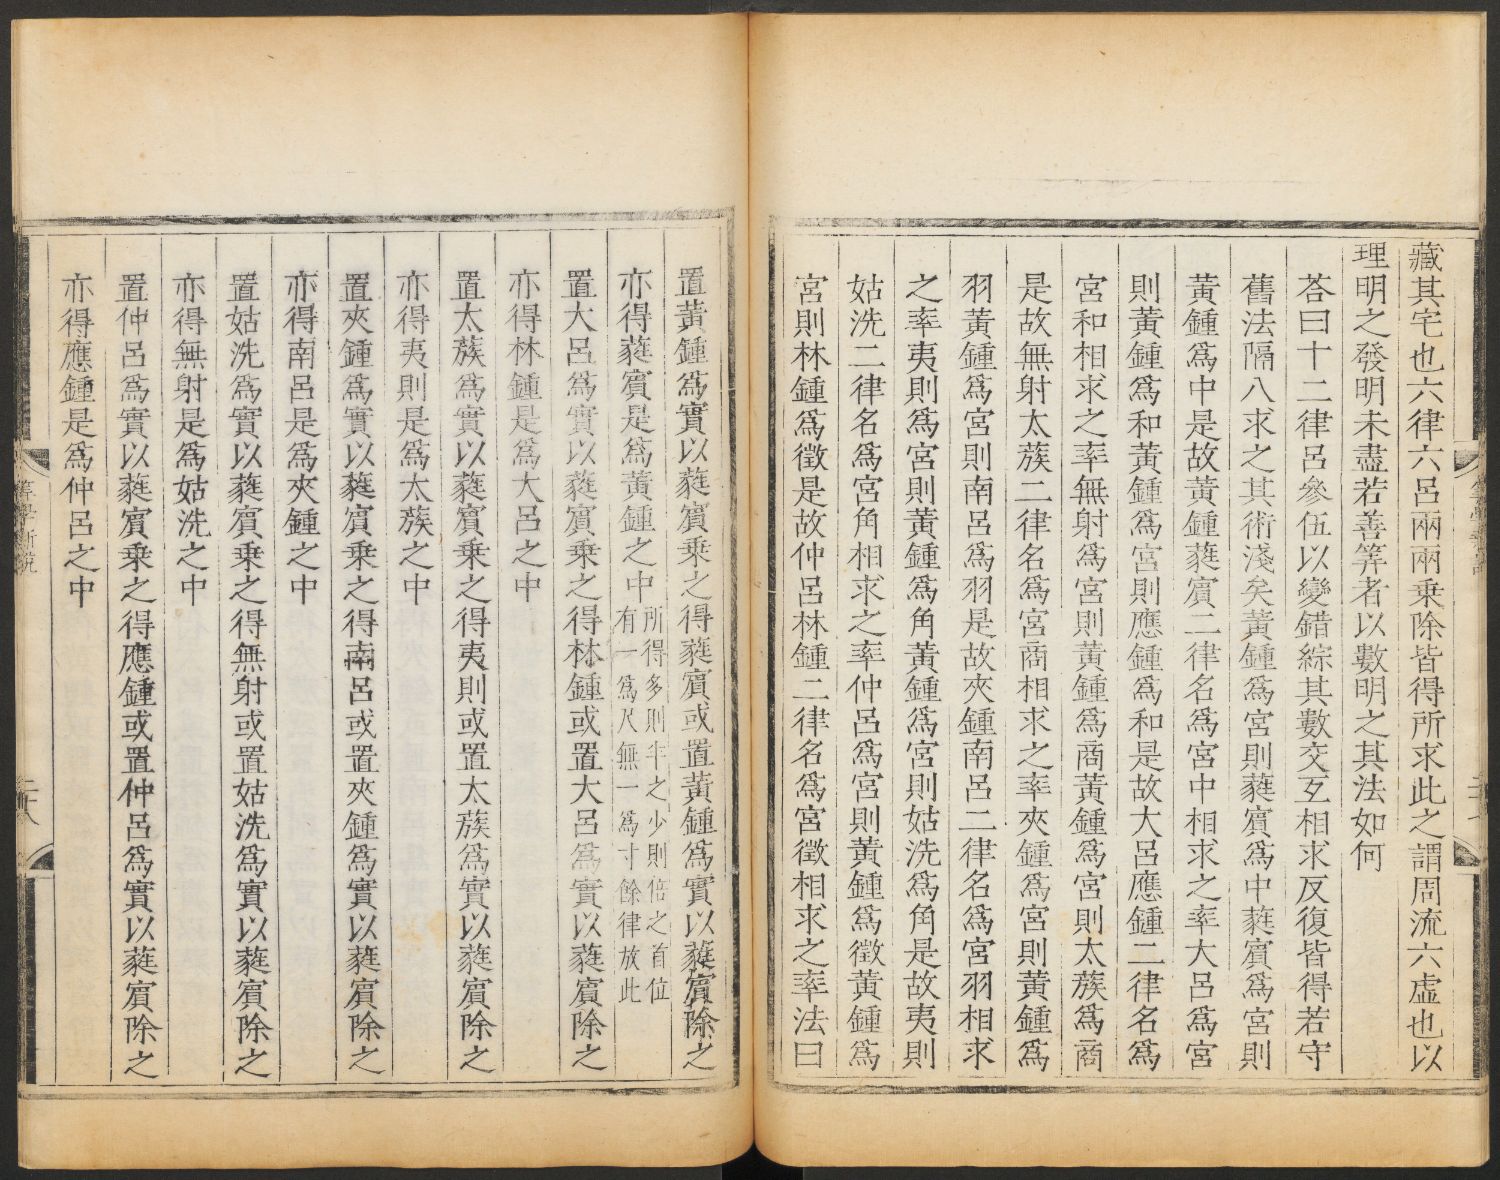 藏其宅也六律六呂兩兩乗除皆得所求此之謂周流六虛也以
理明之發明未盡若善筭者以數明之其法如何
荅曰十二律呂參伍以變錯綜其數交互相求反復皆得若守
舊法隔八求之其術淺矣黃鍾爲宮則蕤賔爲中蕤賔爲宮則
黃鍾爲中是故黃鍾蕤賔二律名爲宮中相求之率大呂爲宮
則黃鍾爲和黃鍾爲宮則應鍾爲和是故大呂應鍾二律名爲
宮和相求之率無射爲宮則黃鍾爲商黃鍾爲宮則太蔟爲商
是故無射太蔟二律名爲宮商相求之率夾鍾爲宮則黃鍾爲
羽黃鍾爲宮則南呂爲羽是故夾鍾南呂二律名爲宮羽相求
之率夷則爲宮則黃鍾爲角黃鍾爲宮則姑洗爲角是故夷則
姑洗二律名爲宮角相求之率仲呂爲宮則黃鍾爲徵黃鍾爲
宮則林鍾爲徵是故仲呂林鍾二律名爲宮徵相求之率法曰
置黃鍾爲實以蕤賔乗之得蕤賔或置黃鍾爲實以蕤賔除之
亦得蕤賔是爲黃鍾之中所得多則半之少則倍之首位
有一爲尺無一爲寸餘律放此
置大呂爲實以蕤賔乗之得林鍾或置大呂爲實以蕤賔除之
亦得林鍾是爲大呂之中
置太蔟爲實以蕤賔乗之得夷則或置太蔟爲實以蕤賔除之
亦得夷則是爲太蔟之中
置夾鍾爲實以蕤賔乗之得南呂或置夾鍾爲實以蕤賔除之
亦得南呂是爲夾鍾之中
置姑洗爲實以蕤賔乗之得無射或置姑洗爲實以蕤賔除之
亦得無射是爲姑洗之中
置仲呂爲實以蕤賔乗之得應鍾或置仲呂爲實以蕤賔除之
亦得應鍾是爲仲呂之中
筭學新說
二十八